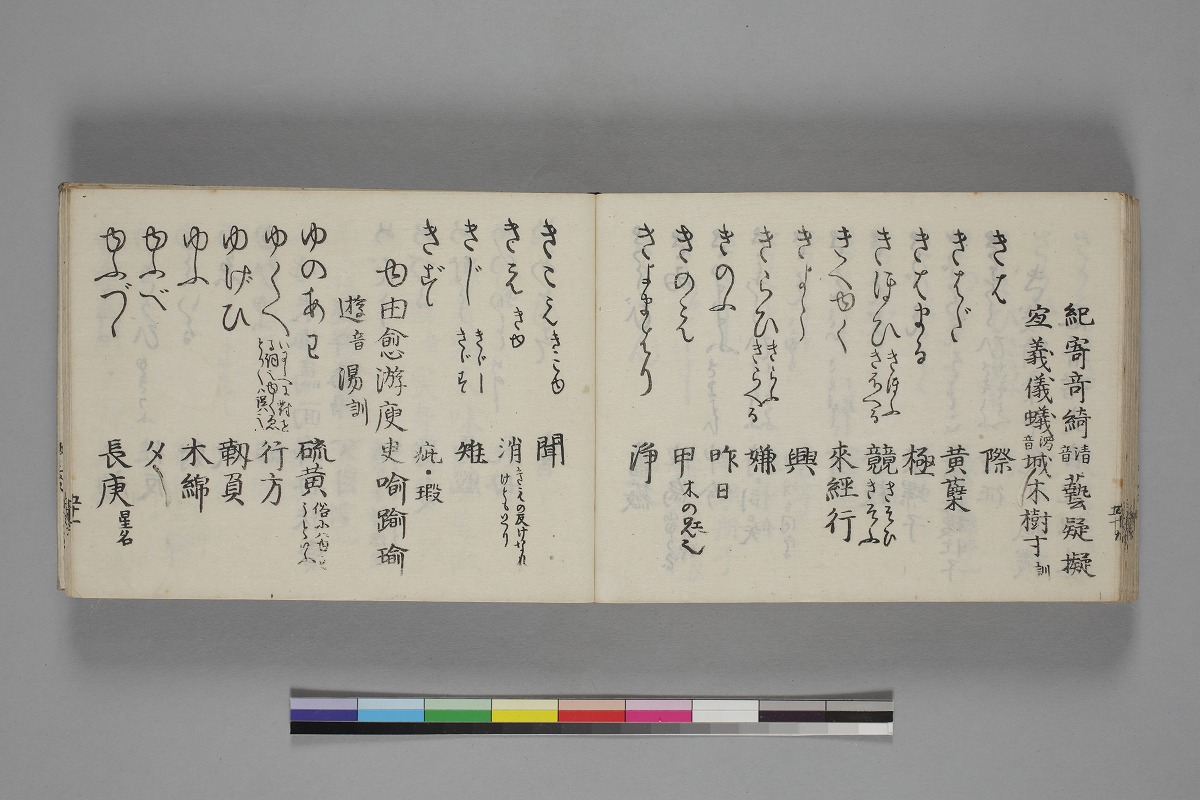 紀寄奇綺清音藝疑擬
宜義儀蟻濁音城木樹寸訓
きは 際
きはだ 黄蘗
きはまる 極
きほひ きほふ きをへる 競 きそひ きそふ
きへゆく 來經行
きよう 興
きらひ きらふ きらへる 嫌
きのふ 昨日
きのえ 甲 木の兄也
きよまはり 淨
きこえ きこゆ 聞
きえ きゆ 消
きじ きゞし きゞす 雉
きず 疵・瑕
ゆ由愈游庾臾喩踰瑜
遊音湯訓
ゆのあわ 硫黄
ゆくへ 行方
ゆげひ 靭負
ゆふ 木綿
ゆふべ 夕
ゆふづゝ 長庚 星名